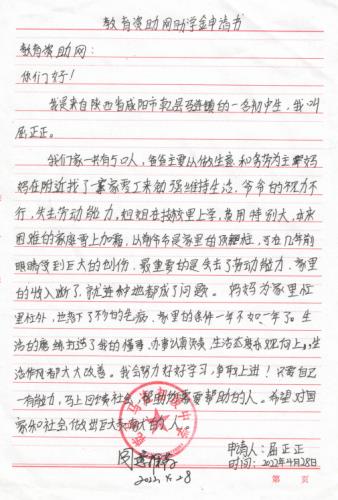 教育资助网助学金申请书
教育资助网：
你们好！
我是来自陕西省咸阳市乾县马连镇的一名初中生，我叫
屈正正。
我们家一共有5口人，爸爸主要以做生意和务农为主，妈
妈在附近找了一家零工来勉强维持生活，爷爷的视力不
行，失去劳动能力，姐姐在技校里上学，费用特别大，本来
困难的家庭雪上加霜，从前爷爷是家里的顶梁柱，可在几年前
眼睛受到巨大的创伤，最重要的是失去了劳动能力，家里
的收入断了，就连种地都成了问题。妈妈为家里忙
里忙外，也落下了不少的毛病，家里的条件一年不如一年了。生
活的磨练打造了我的懂事，办事认真负责，生活态度乐观向上，生
活作风都大大改善。我会努力好好学习，争取上进！只要自己
一有能力，马上回馈社会，帮助需要帮助的人。希望对国
家和社会做出巨大贡献的人。
申请人：屈正正
时间：2022年4月28日
2022.4.28
第 页